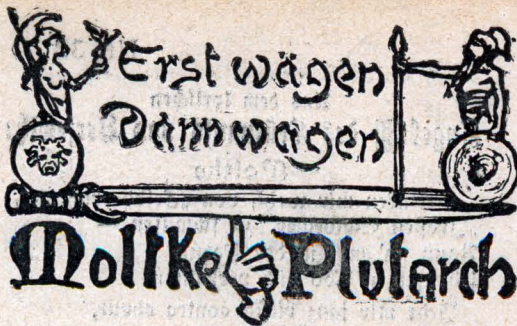 Erst wägen
Dann wagen
Moltke Plutarch